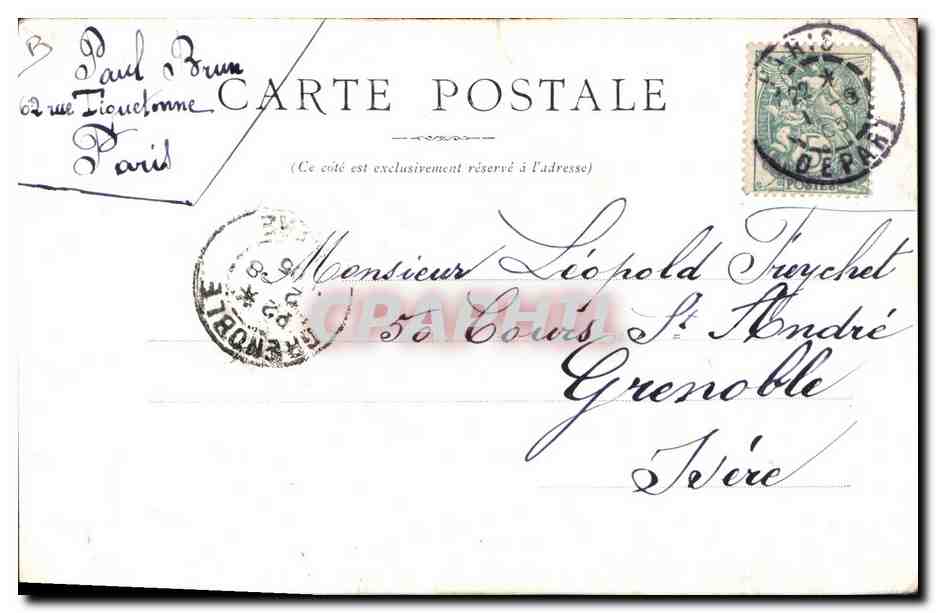 B
Paul Brun
62 rue Tiquetonne
Paris
CARTE POSTALE
(Ce côté est exclusivement réservé à l'adresse)
PARIS
DEPART
POSTES
Monsieur Léopold Freychet
50 Cours St André
Grenoble
Isére
GRENOBLE
CPAPHIL